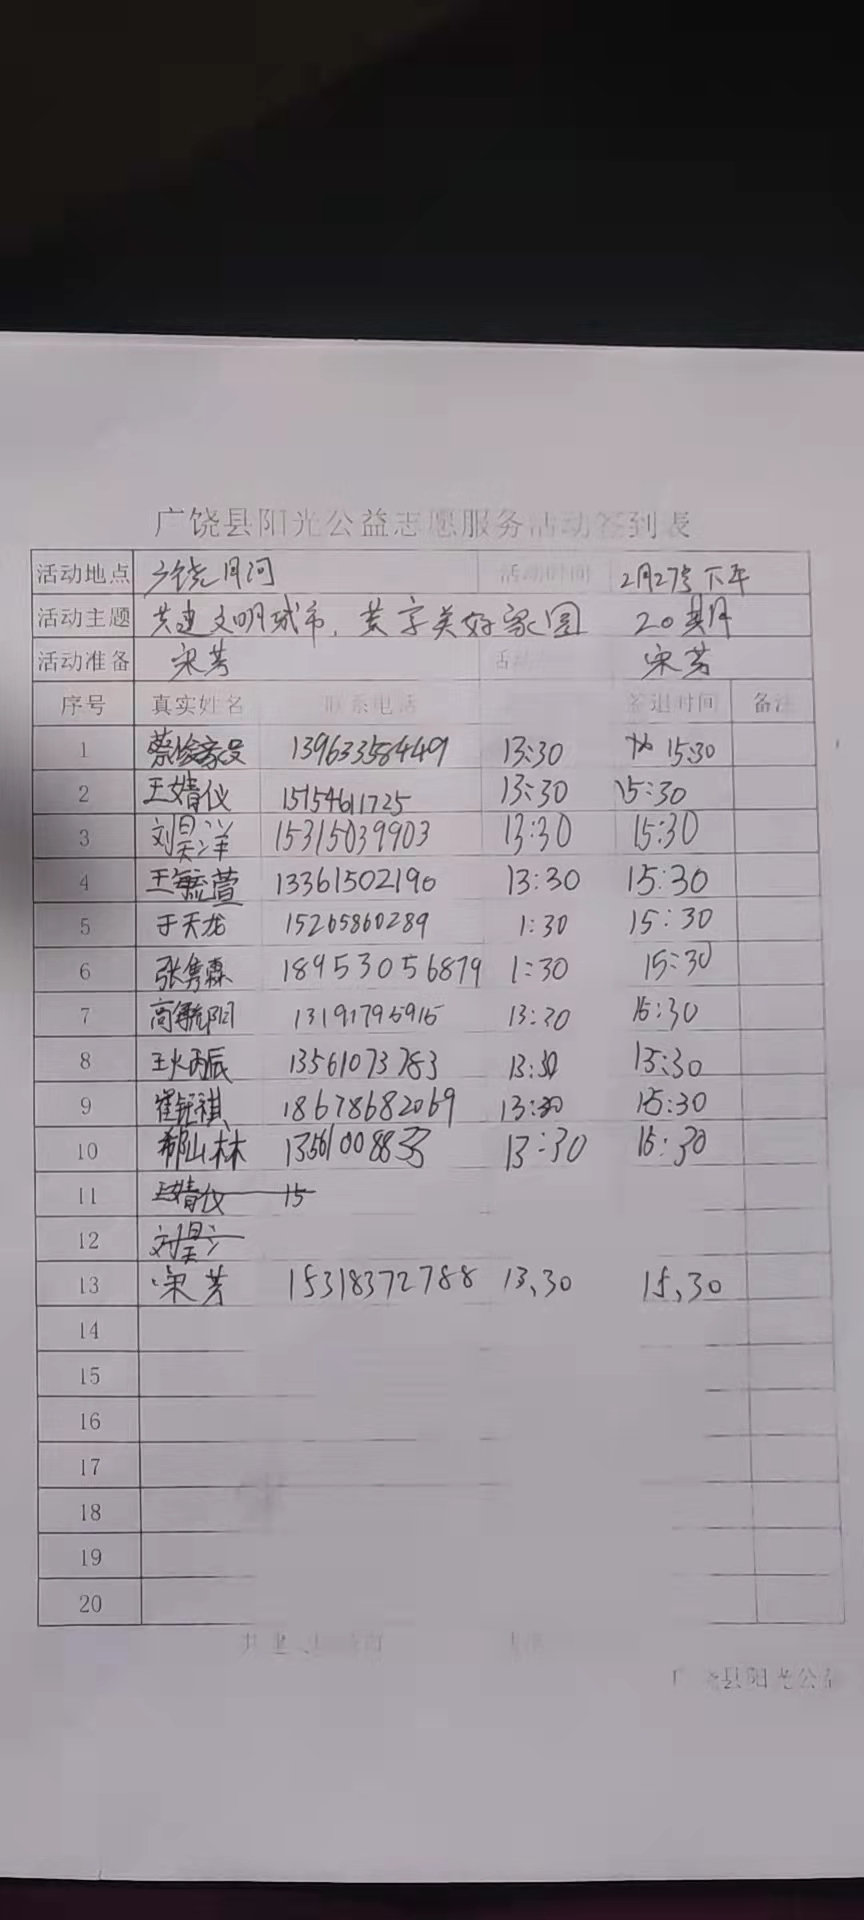 广饶县阳光公益志愿服务活动签到表
活动地点 广饶月河 活动时间 2月27号下午
活动主题 共建文明城市,共享美好家园 20期
活动准备 宋芳 活动 宋芳
序号 真实姓名 联系电话 签退时间 备注
1 13963358449 13:30 15:30
2 王婧仪 15154611725 13:30 15:30
3 刘昊洋 15315039903 13:30 15:30
4 王毓萱 13361502190 13:30 15:30
5 于天龙 15265860289 1:30 15:30
6 张隽霖 18953056879 1:30 15:30
7 高毓阳 13:30 15:30
8 王炳辰 13561073783 13:30 15:30
9 崔钰祺 18678682069 13:30 15:30
10 郝山林 13:30 15:30
11 王婧仪 15
12 刘昊
13 宋芳 15318372788 13.30 15.30
14
15
16
17
18
19
20
共建
广饶县阳光公益